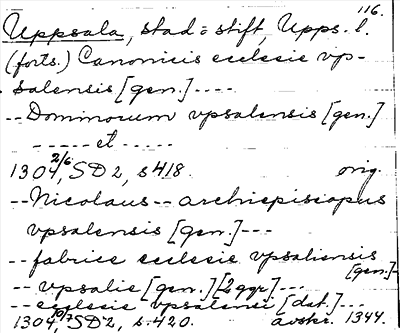 116.
Uppsala, stad = stift, Upps. l.
(forts.) Canonicis ecclesie vp-
salensis [gen.] ----
-- Dominorum vpsalensis [gen.]
----- et -----
1304 2/6, SD 2, s 418. orig.
-- Nicolaus -- archiepiscopus
vpsalensis [gen.] ---
-- fabrice ecclesie vpsaliensis [gen.] --
-- vpsalie [gen.] [2 ggr] ---
-- ecclesie vpsalensi [dat.] ---
1304 10/7, SD 2, s. 420. avskr. 1344.